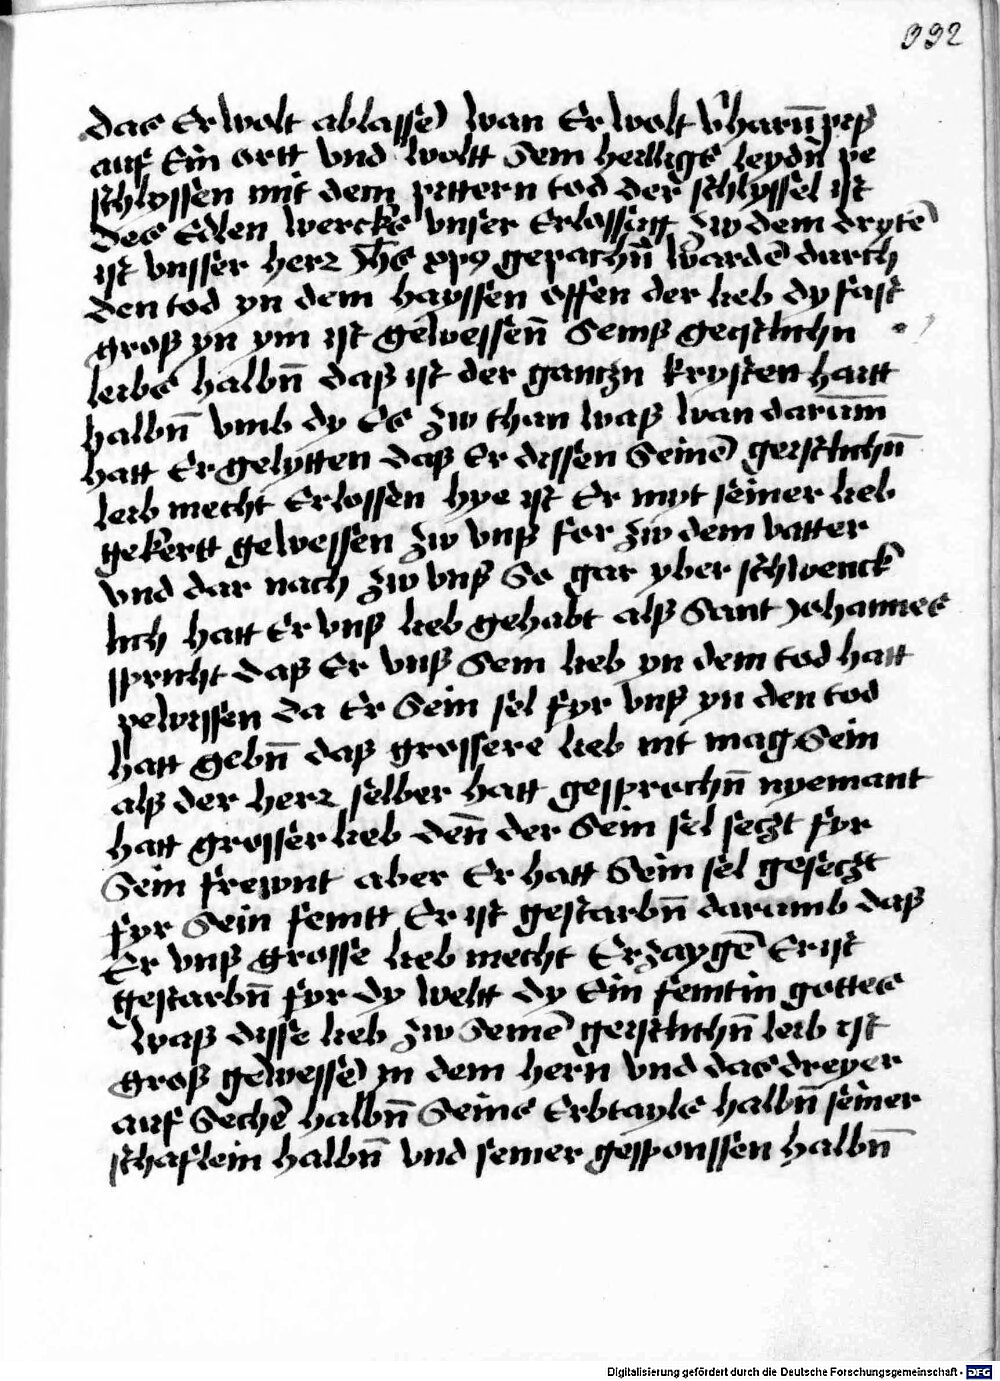 332
das Er wolt ablassē wan Er wolt v̄harū pis
auf Ein ortt vnd woltt Sein heiligs leydn̄ pe
schlyssen mit dem pittern tod der schlyssel ist
des Edlen wercks vnser Erlossūg zw dem drytē
ist vnsser herr Jh̄s xp9 gepachn̄ wordē durch
den tod yn dem hayssen offen der lieb dy fast
groß yn ym ist gewessen̄ Seinß geistlichn
leibs halbn̄ daß ist der gantzn krystenhaitt
halbn̄ vmb dy Es zw than waß wan darūm
hatt Er gelytten daß Er dissen Seinē geistlichn̄
leib mecht Erlossen hye ist Er myt seiner lieb
gekertt gewessen zw vnß for zw dem vatter
vnd dar nach zw vnß So gar yber schwenck
lich hatt Er vnß lieb gehabt alß Sant Johannes
spricht daß Er vnß Sein lieb yn dem tod hatt
pewissen da Er Sein sel fyr vnß yn den tod
hatt gebn̄ daß grossere lieb nit mag Sein
alß der herr selber hatt gesprochn̄ nyemant
hatt grosser lieb den̄ der Sein sel seczt fyr
Sein frewnt aber Er hatt Sein sel geseczt
fyr Sein feintt Er ist gestarbn̄ darumb daß
Er vnß grosse lieb mecht Erzaygē Er ist
gestarbn̄ fyr dy weltt dy Ein feintin gottes
waß disse lieb zw Seinē geistlichn̄ leib ist
groß gewessē in dem hern̄ vnd das dreyer
auf Sechē halbn̄ Seins Erbtayls halbn̄ seiner
schaflein halbn̄ vnd seiner gesponssen halbn̄
Digitalisierung gefördert durch die Deutsche Forschungsgemeinschaft - DFG